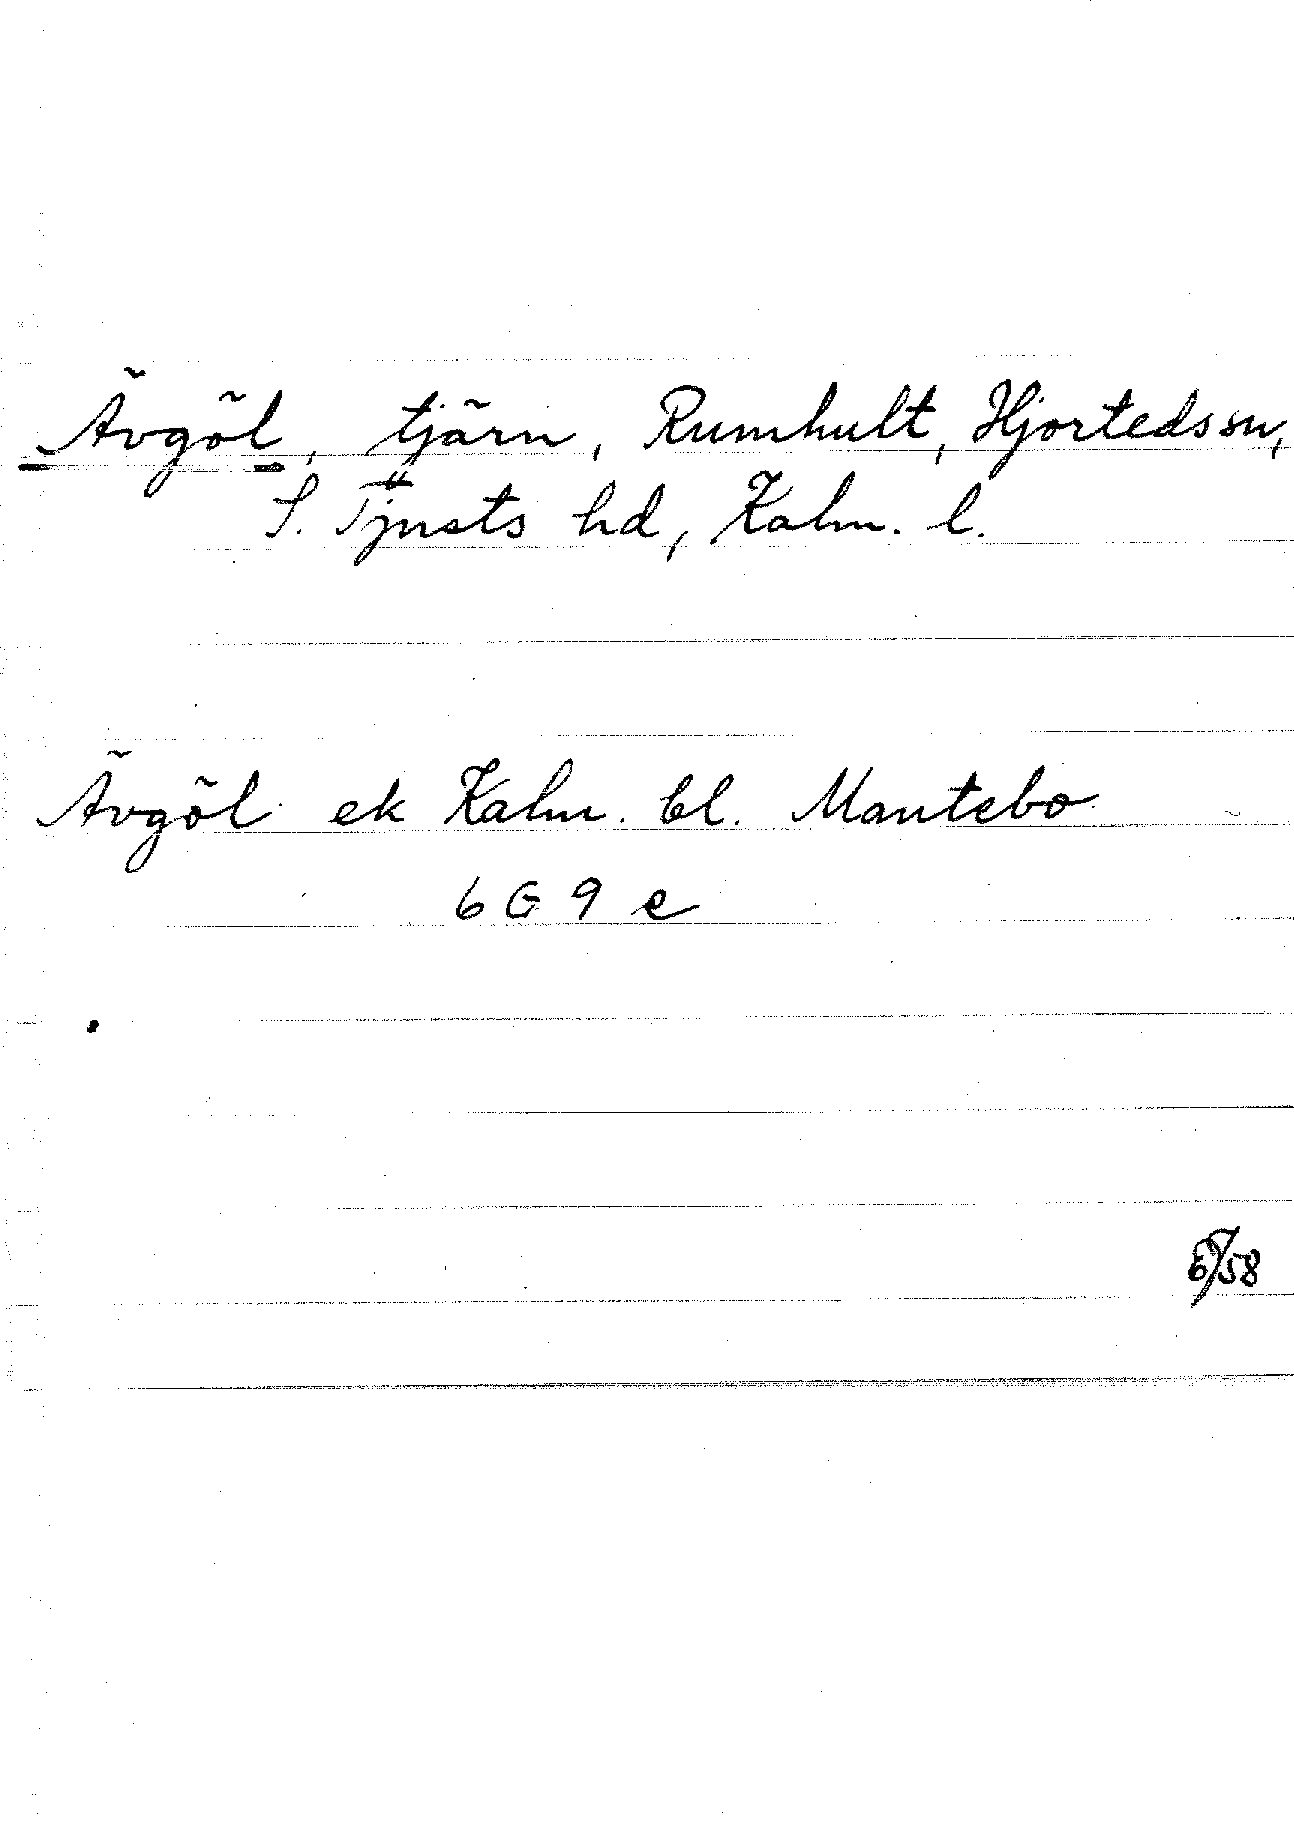 Ävgöl, tjärn, Rumhult, Hjorteds sn,
S. Tjusts hd, Kalm. l.
Ävgöl ek Kalm. bl. Mantebo
6 G 9 e